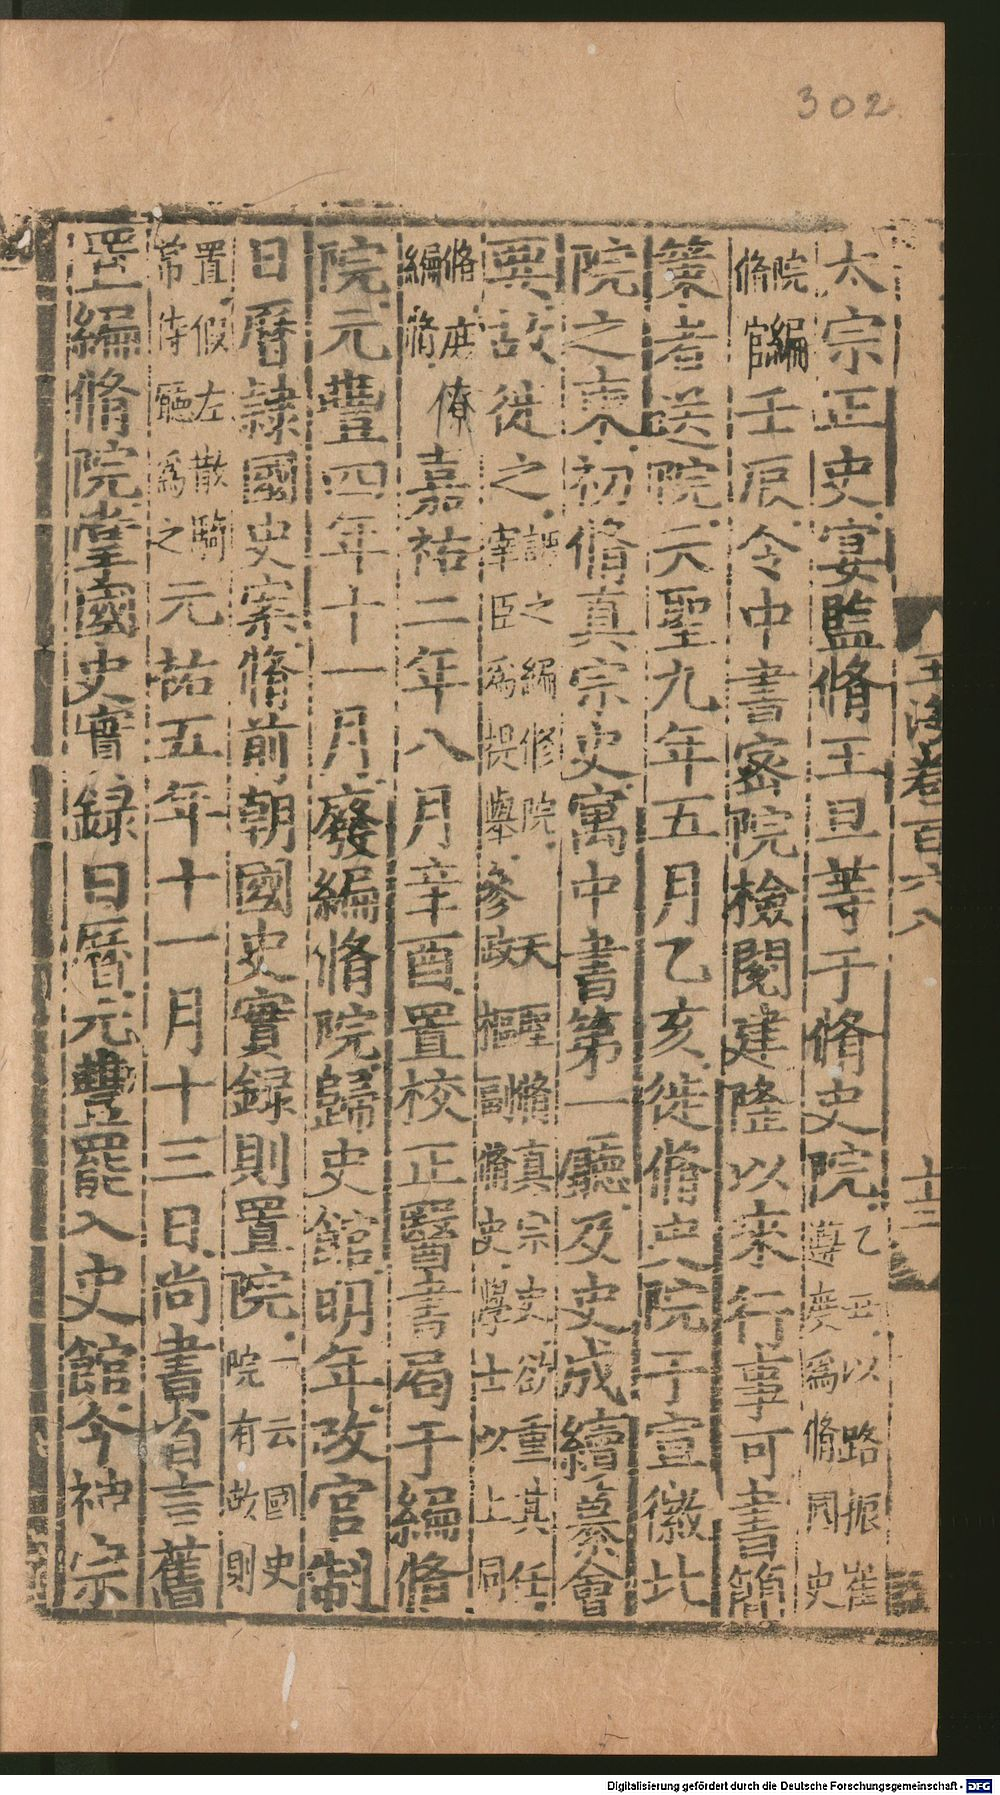 302
玉海卷百六八
十三
太宗正史宴監脩王旦等于脩史院乙酉以路振崔遵度爲脩國史
院編脩官壬辰令中書密院檢閱建隆以來行事可書簡
策者送院天聖九年五月乙亥徙脩史院于宣徽北
院之東初脩真宗史寓中書第一廳及史成續纂會
要故徙之謂之編修院天聖脩真宗史欲重其任宰臣爲提舉參政樞副脩史學士以上同
脩庶僚編脩嘉祐二年八月辛酉置校正醫書局于編脩
院元豐四年十一月廢編脩院歸史館明年改官制
日曆隸國史案脩前朝國史實録則置院一云國史院有故則
置假左散騎常侍廳爲之元祐五年十一月十三日尚書省言舊
置編脩院掌國史實録日曆元豐罷入史館今神宗
Digitalisierung gefördert durch die Deutsche Forschungsgemeinschaft - DFG